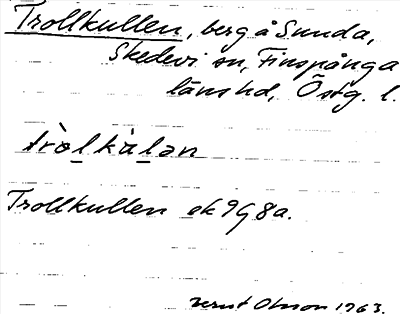 Trollkullen, berg å Sunda,
Skedevi sn, Finspånga
länshd, Östg. l.
tròlkàlan
Trollkullen ek 9G8a.
Ernst Olsson 1963.